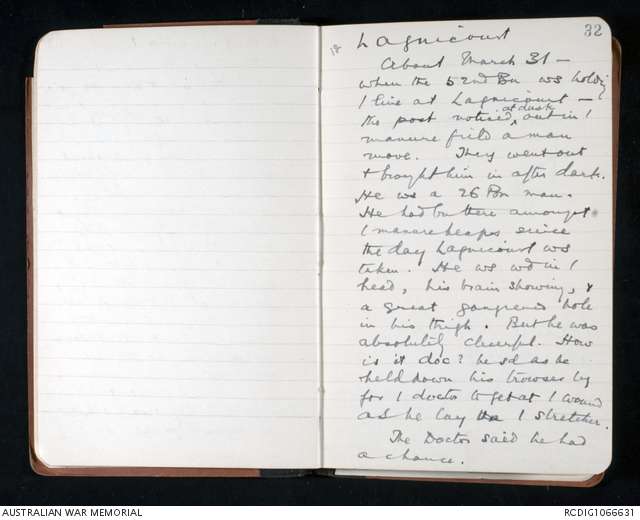 32
Lagnicourt
About March 31 —
when the 52nd Bn ws holdg
/ line at Lagnicourt —
the post noticed, at dusk, out in /
manure field a man
move. They went out
& brought him in after dark.
He ws a 26 Bn man.
He had bn there amongst
/ manure heaps since
the day Lagnicourt ws
taken. He ws wd in /
head, his brain showing, &
a great gangrened hole
in his thigh. But he was
absolutely cheerful. How
is it doc? he sd as he
held down his trowser leg
for / doctor to get at / wound
as he lay / stretcher.
The Doctor said he had
a chance.
AUSTRALIAN WAR MEMORIAL
RCDIG1066631